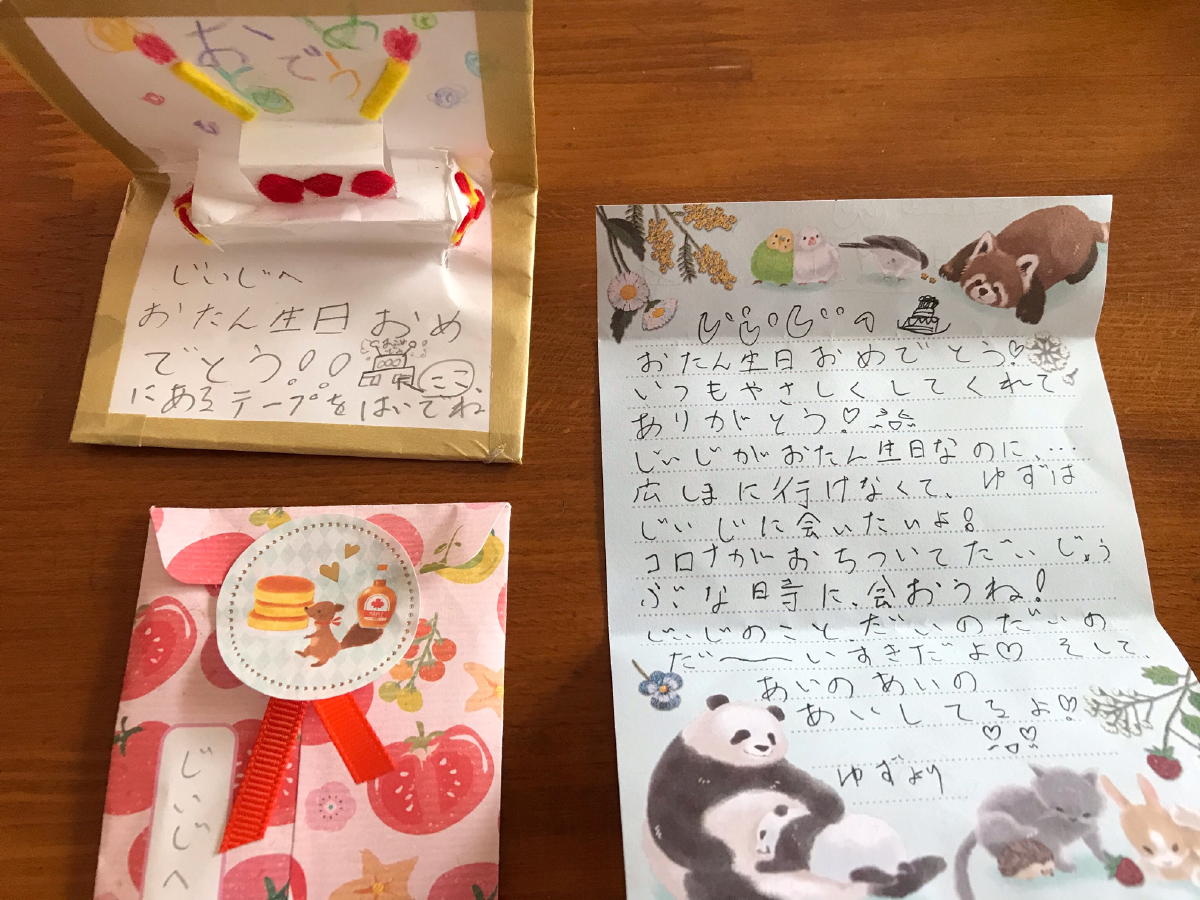 おめでとう
じいじへ
おたん生日 おめ
でとう!!
ここ
にあるテープをはいでね
じいじへ
じいじの
おたん生日おめでとう!
いつもやさしくしてくれて
ありがとう!
じいじがおたん生日なのに、…
広しまに行けなくて、ゆずは
じいじに会いたいよ!
コロナがおちついてだいじょう
ぶな時に、会おうね!
じいじのことだいのだいの
だ〜いすきだよ♡ そして、
あいのあいの
あいしてるよ!
ゆずより